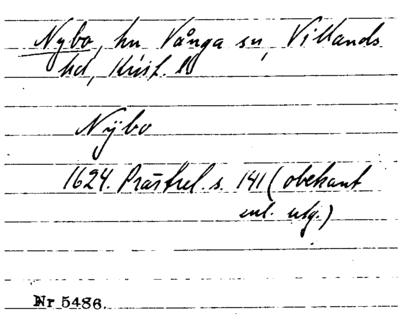 Nybo, hn Vånga sn, Villands
hd, Krist. l.
Nÿbo
1624. Prästrel. s. 141 (obekant
enl. utg.)
Nr 5486.